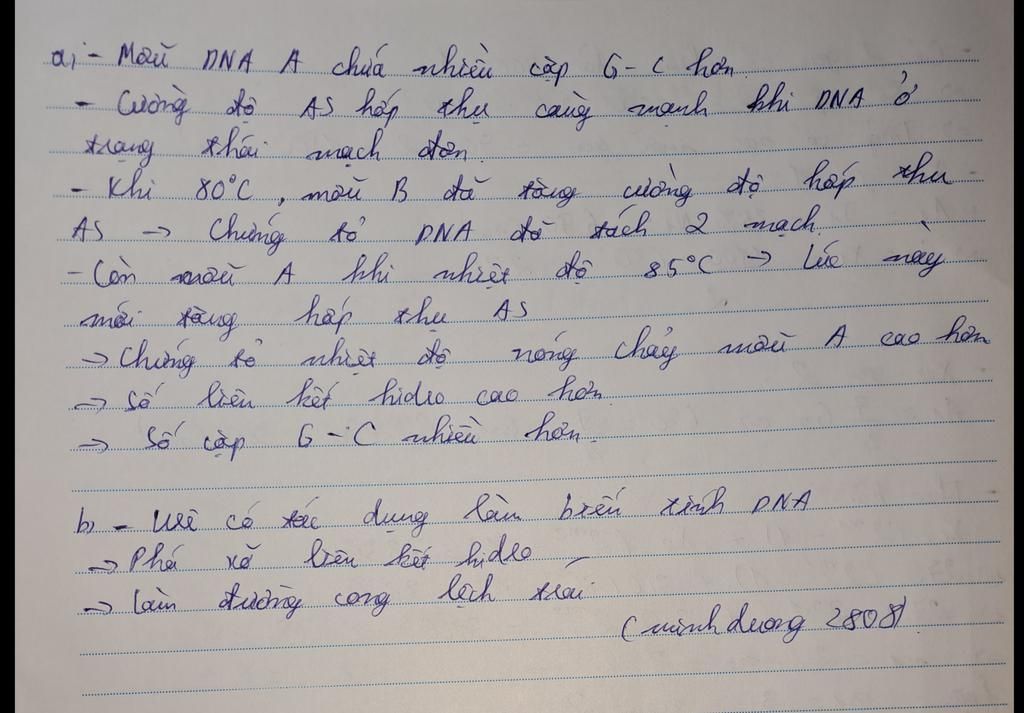 a, - Mẫu DNA A chứa nhiều cặp G-C hơn
- Cường độ AS hấp thụ càng mạnh khi DNA ở
trạng thái mạch đơn.
- Khi 80°C, mẫu B đã tăng cường độ hấp thu
AS → Chứng tỏ DNA đã tách 2 mạch.
- Còn mẫu A khi nhiệt độ 85°C → Lúc này
mới tăng hấp thụ AS
→ Chứng tỏ nhiệt độ nóng chảy mẫu A cao hơn
→ Số liên kết hidro cao hơn
→ Số cặp G-C nhiều hơn.
b, - Urê có tác dụng làm biến tính DNA
→ Phá vỡ liên kết hidro
→ Làm đường cong lệch trái.
(minh duong 2808)